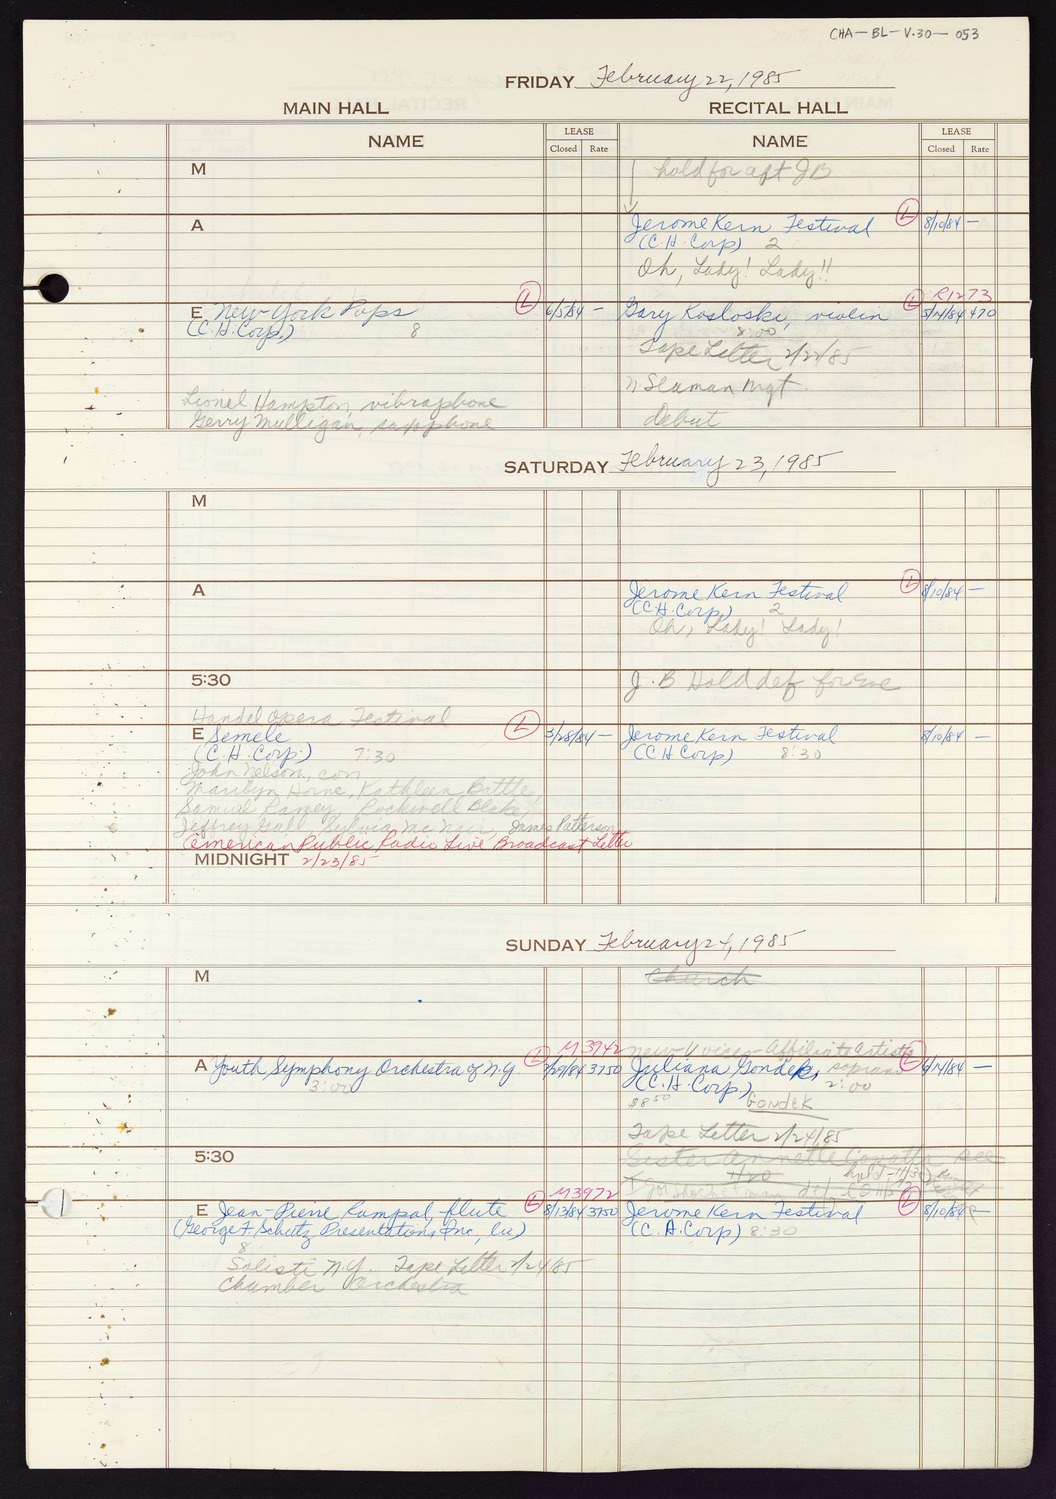 CHA-BL-V.30-053
FRIDAY February 22, 1985
MAIN HALL RECITAL HALL
NAME LEASE Closed Rate NAME LEASE Closed Rate
M hold for aft JB
A Jerome Kern Festival (L) 8/10/84 —
(C.H. Corp) 2
Oh, Lady! Lady!!
R1273
E New York Pops (L) 6/5/84 — Gary Kosloski, violin (L) 5/14/84 470
(C.H. Corp.) 8 8:00
Tape Letter 2/22/85
N Seaman Mgt.
Lionel Hampton, vibraphone
Gerry Mulligan, saxophone debut
SATURDAY February 23, 1985
M
A Jerome Kern Festival (L) 8/10/84 —
(C.H. Corp) 2
Oh, Lady! Lady!
5:30 J.B Hold def for Eve
Handel Opera Festival
E Semele (L) 3/28/84 — Jerome Kern Festival 8/10/84 —
(C.H. Corp.) 7:30 (CH Corp) 8:30
John Nelson, con
Marilyn Horne, Kathleen Battle
Samuel Ramey, Rockwell Blake,
Jeffrey Gall, Sylvia McNair, James Patterson
American Public Radio Live Broadcast Letter
MIDNIGHT 2/23/85
SUNDAY February 24, 1985
M Church
M3942 New Voices - Affiliate Artists
A Youth Symphony Orchestra of N.Y (L) 3750 Juliana Gondek, soprano (L) 6/14/84 —
3:00 (C.H. Corp.) 2:00
$8.50 Gondek
Tape Letter 2/24/85
5:30 Sister Annette see
11/20 hold - 11/30
M3972
E Jean-Pierre Rampal, flute (L) 8/13/84 3750 Jerome Kern Festival (L) 8/10/84 —
(George F. Schutz Presentations, Inc, lic) (C.H. Corp) 8:30
8
Solisti N.Y. Tape Letter 2/24/85
Chamber Orchestra